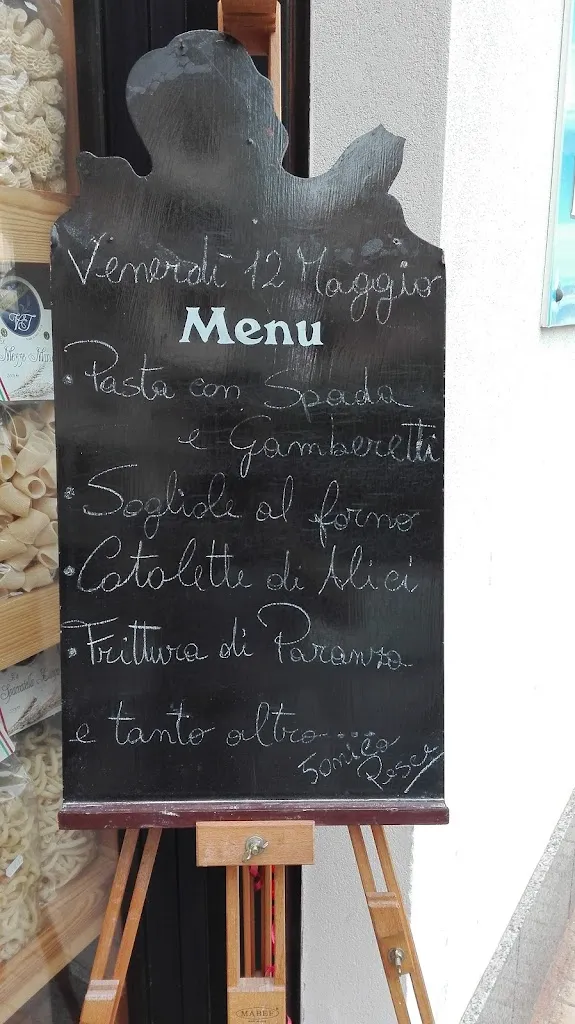 Venerdì 12 Maggio
Menu
• Pasta con Spada
e Gamberetti
• Sogliole al forno
• Cotolette di Alici
• Frittura di Paranza
e tanto altro....
MABEF